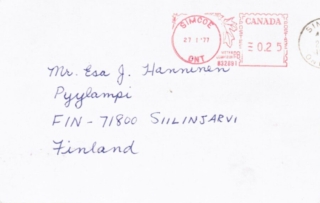 SIMCOE
27 I -77
ONT
CANADA
0.25
Mr. Esa J. Hanninen
Pyylampi
FIN - 71800 SIILINJARVI
Finland